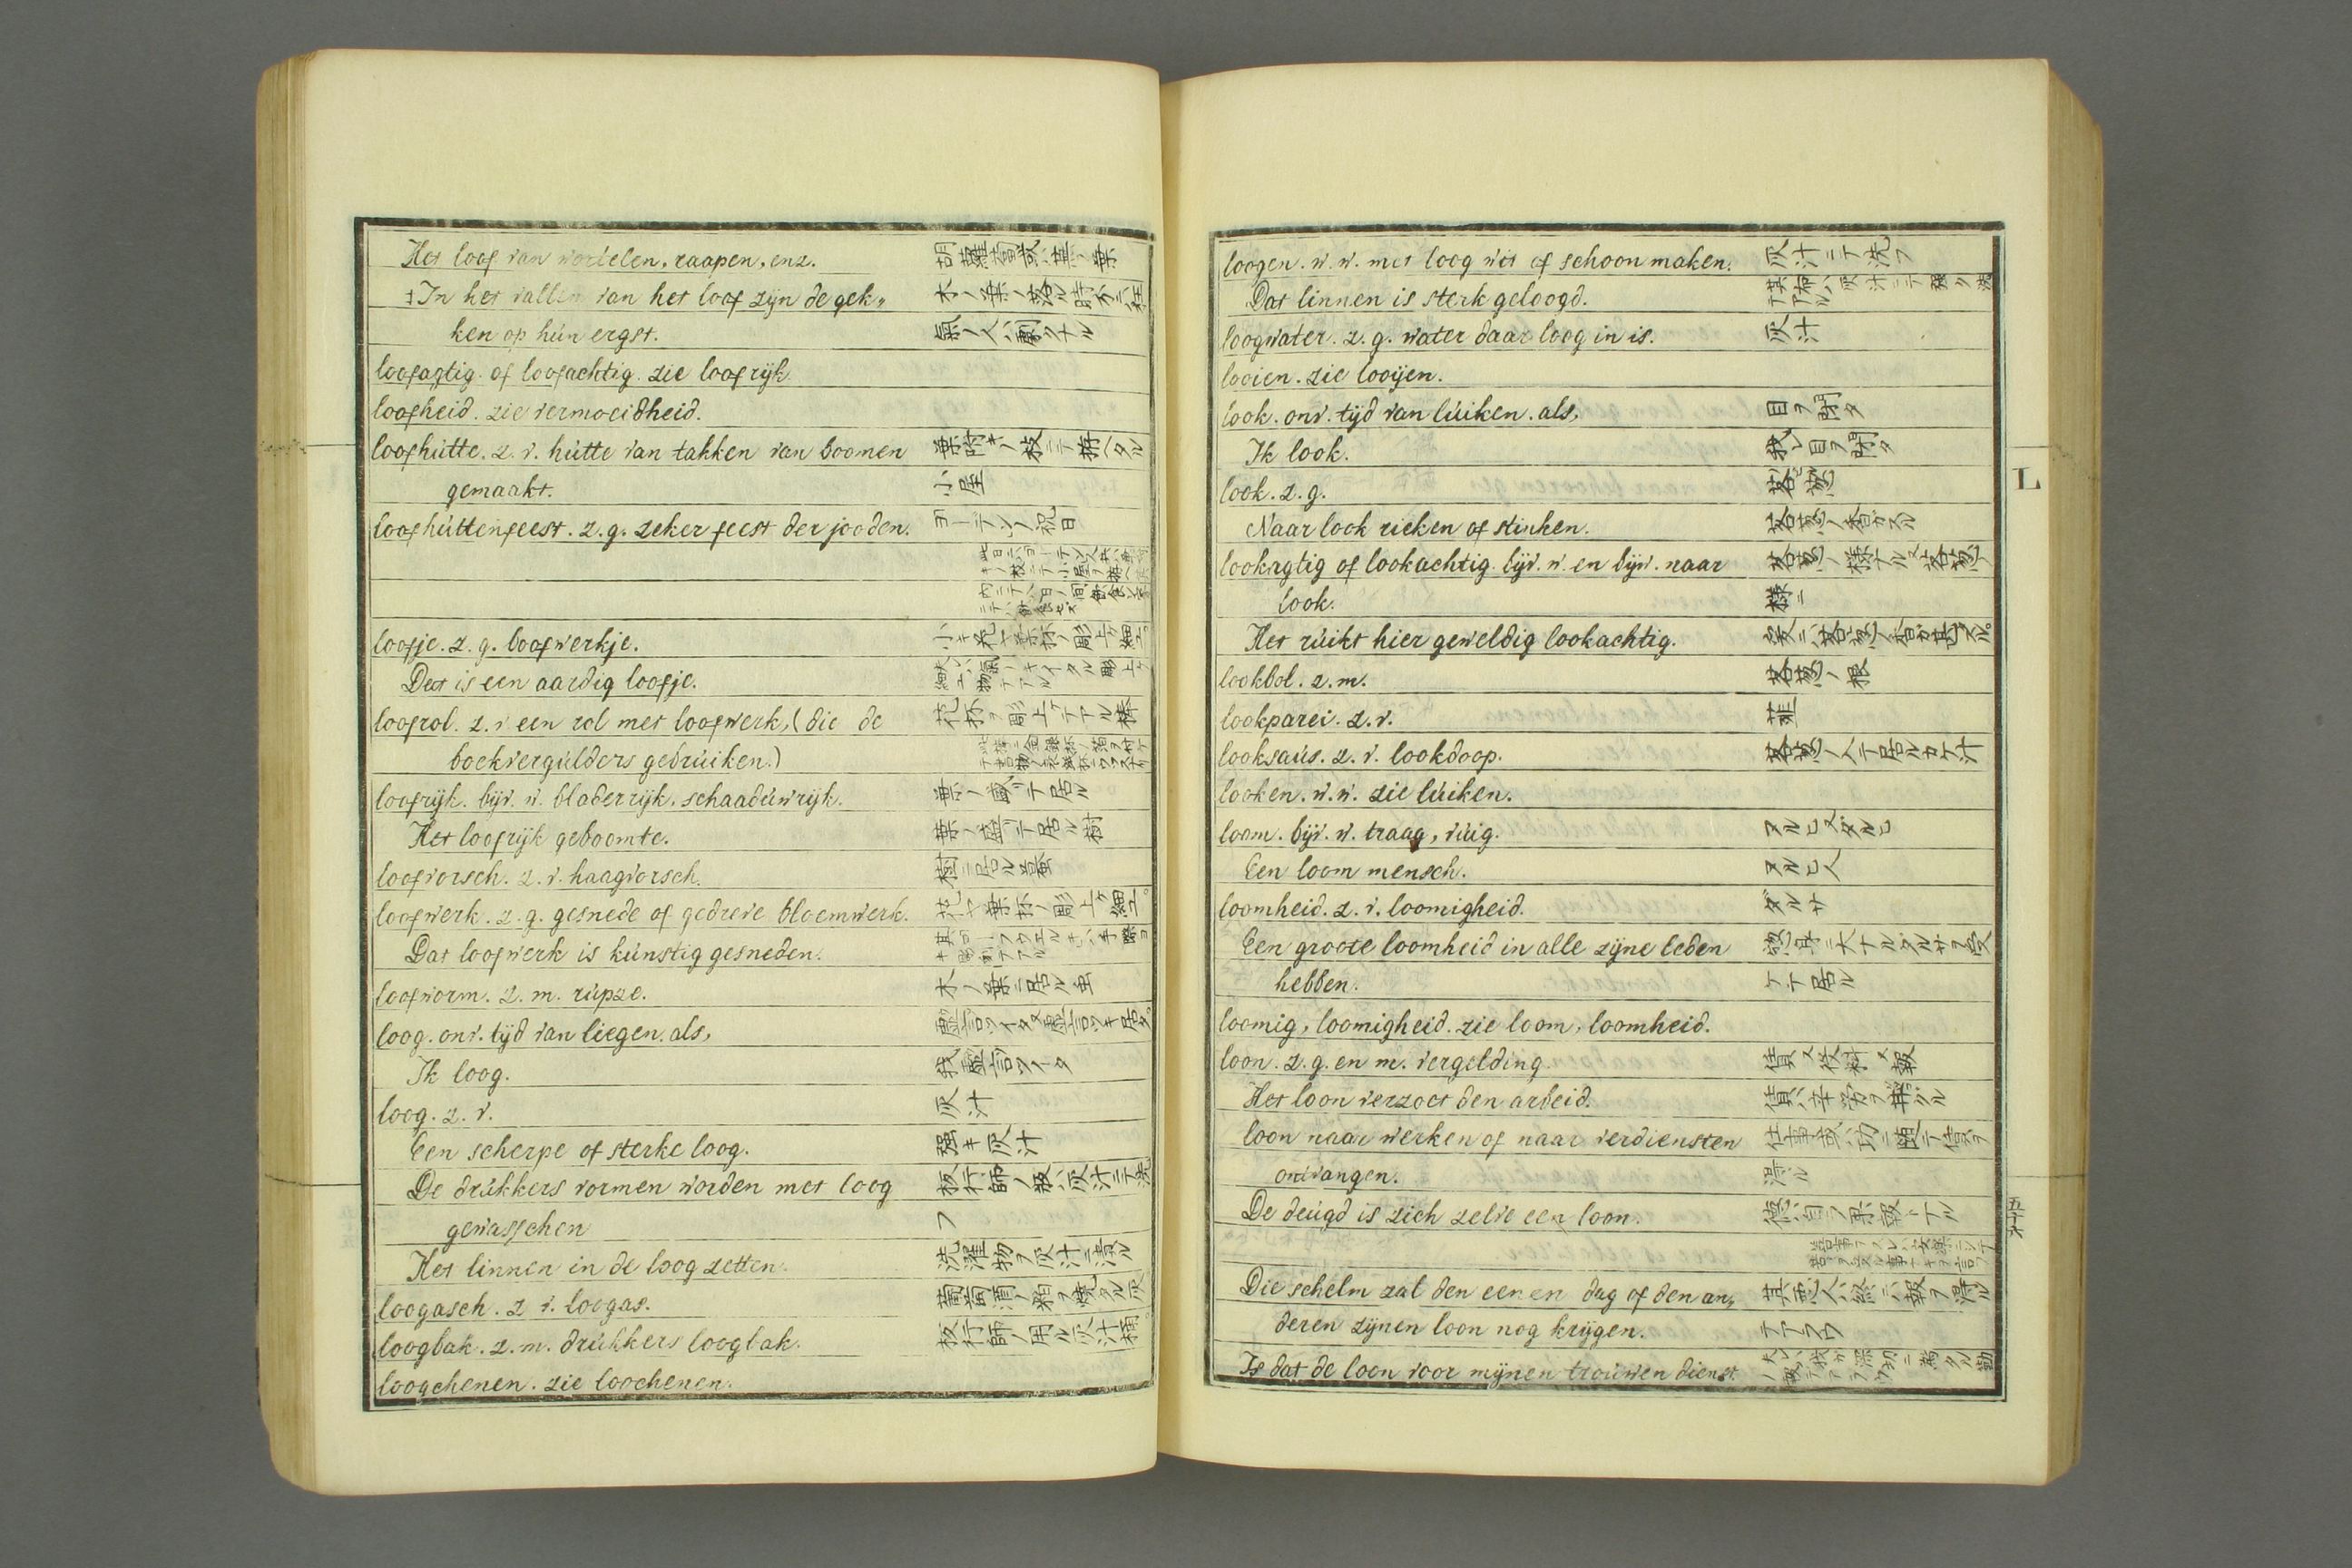 Het loof van wortelen, raapen, enz. 胡蘿蔔或ハ蕪ノ葉
‡In het vallen van het loof zijn de gek„ 木ノ葉ノ落ル時分ニハ狂
ken op hún ergst. 氣ノ人ハ劇クナル
loofagtig of loofachtig. zie loofrijk.
loofheid. zie vermoeidheid.
loofhútte. z. v. hútte van takken van boomen 葉附キノ枝ニテ拵ヘタル
gemaakt. 小屋
loofhúttenfeest. z. g. zeker feest der jooden. ヨーデンノ祝日
loofje. z. g. loofwerkje. 小キ花ヤ葉抔ノ彫上ケ細工
Dat is een aardig loofje.
loofrol. z. v. een rol met loofwerk, (die de 花抔ヲ彫上ケテアル棒
boekvergúlders gebrúiken.)
loofrijk. bijv. w. bladerrijk, schaadúwrijk. 葉ノ盛ツテ居ル
Het loofrijk geboomte. 葉ノ盛ツテ居ル樹
loofvorsch. z. v. haagvorsch. 樹ニ居ル蟇
loofwerk. z. g. gesnede of gedreve bloemwerk. 花ヤ葉抔ノ彫上ケ細工
Dat loofwerk is kúnstig gesneden.
loofworm. z. m. rúpze. 木ノ葉ニ居ル虫
loog. onv. tijd van liegen. als, 虚言ツイタ又虚言ツキ居タ
Ik loog. 我虚言ツイタ
loog. z. v. 灰汁
Een scherpe of sterke loog. 强キ灰汁
De drúkkers vormen worden met loog 板行師ノ板ハ灰汁ニテ洗
gewasschen フ
Het linnen in de loog zetten. 洗濯物ヲ灰汁ニ漬ル
loogasch. z. v. loogas. 葡萄酒ノ粕ヲ燒タル灰
loogbak. z. m. drúkkers loogbak. 板行師ノ用ル灰汁桶
loogchenen. zie loochenen.
loogen. w. w. met loog wit of schoon maken. 灰汁ニテ洗フ
Dat linnen is sterk geloogd. 其布ハ灰汁ニテ强ク洗テアル
loogwater. z. g. water daar loog in is. 灰汁
looien. zie looijen.
look. onv. tijd van lúiken. als, 目ヲ閉タ
Ik look. 我レ目ヲ閉タ
look. z. g. 茖葱
Naar look rieken of stinken. 茖葱ノ香ガスル
lookagtig of lookachtig. bijv. w. en bijw. naar 茖葱ノ樣ナル又茖葱ノ
look. 樣ニ
Het rúikt hier geweldig lookachtig. 爰ニハ茖葱ノ香ガ甚スル
lookbol. z. m. 茖葱ノ根
lookparei. z. v. 韮
looksaús. z. v. lookdoop. 茖葱ノ入テ居ルカケ汁
looken. w. w. zie lúiken.
loom. bijv. w. traag, vúig. ヌルヒ又ダルヒ
Een loom mensch. ヌルヒ人
loomheid. z. v. loomigheid. ダルサ
Een groote loomheid in alle zijne leden 惣身ニ大ナルダルサヲ受
hebben. ケテ居ル
loomig, loomigheid. zie loom, loomheid.
loon. z. g. en m. vergelding. 賃又役料又報
Het loon verzoet den arbeid. 賃ハ辛労ヲ
loon naar werken of naar verdiensten 仕事或ハ功ニ随テ賃ヲ
ontvangen. 得ル
De deúgd is zich zelve een loon. 德ハ自ラ果報トナル
Die schelm zal den eenen dag of den an„ 其悪人ハ終ニハ報ヲ得ル
deren zijnen loon nog krijgen. テアラウ
Is dat de loon voor mijnen troúwen dienst
L